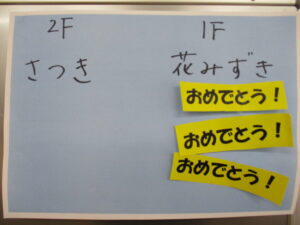 2F
さつき
1F
花みずき
おめでとう!
おめでとう!
おめでとう!